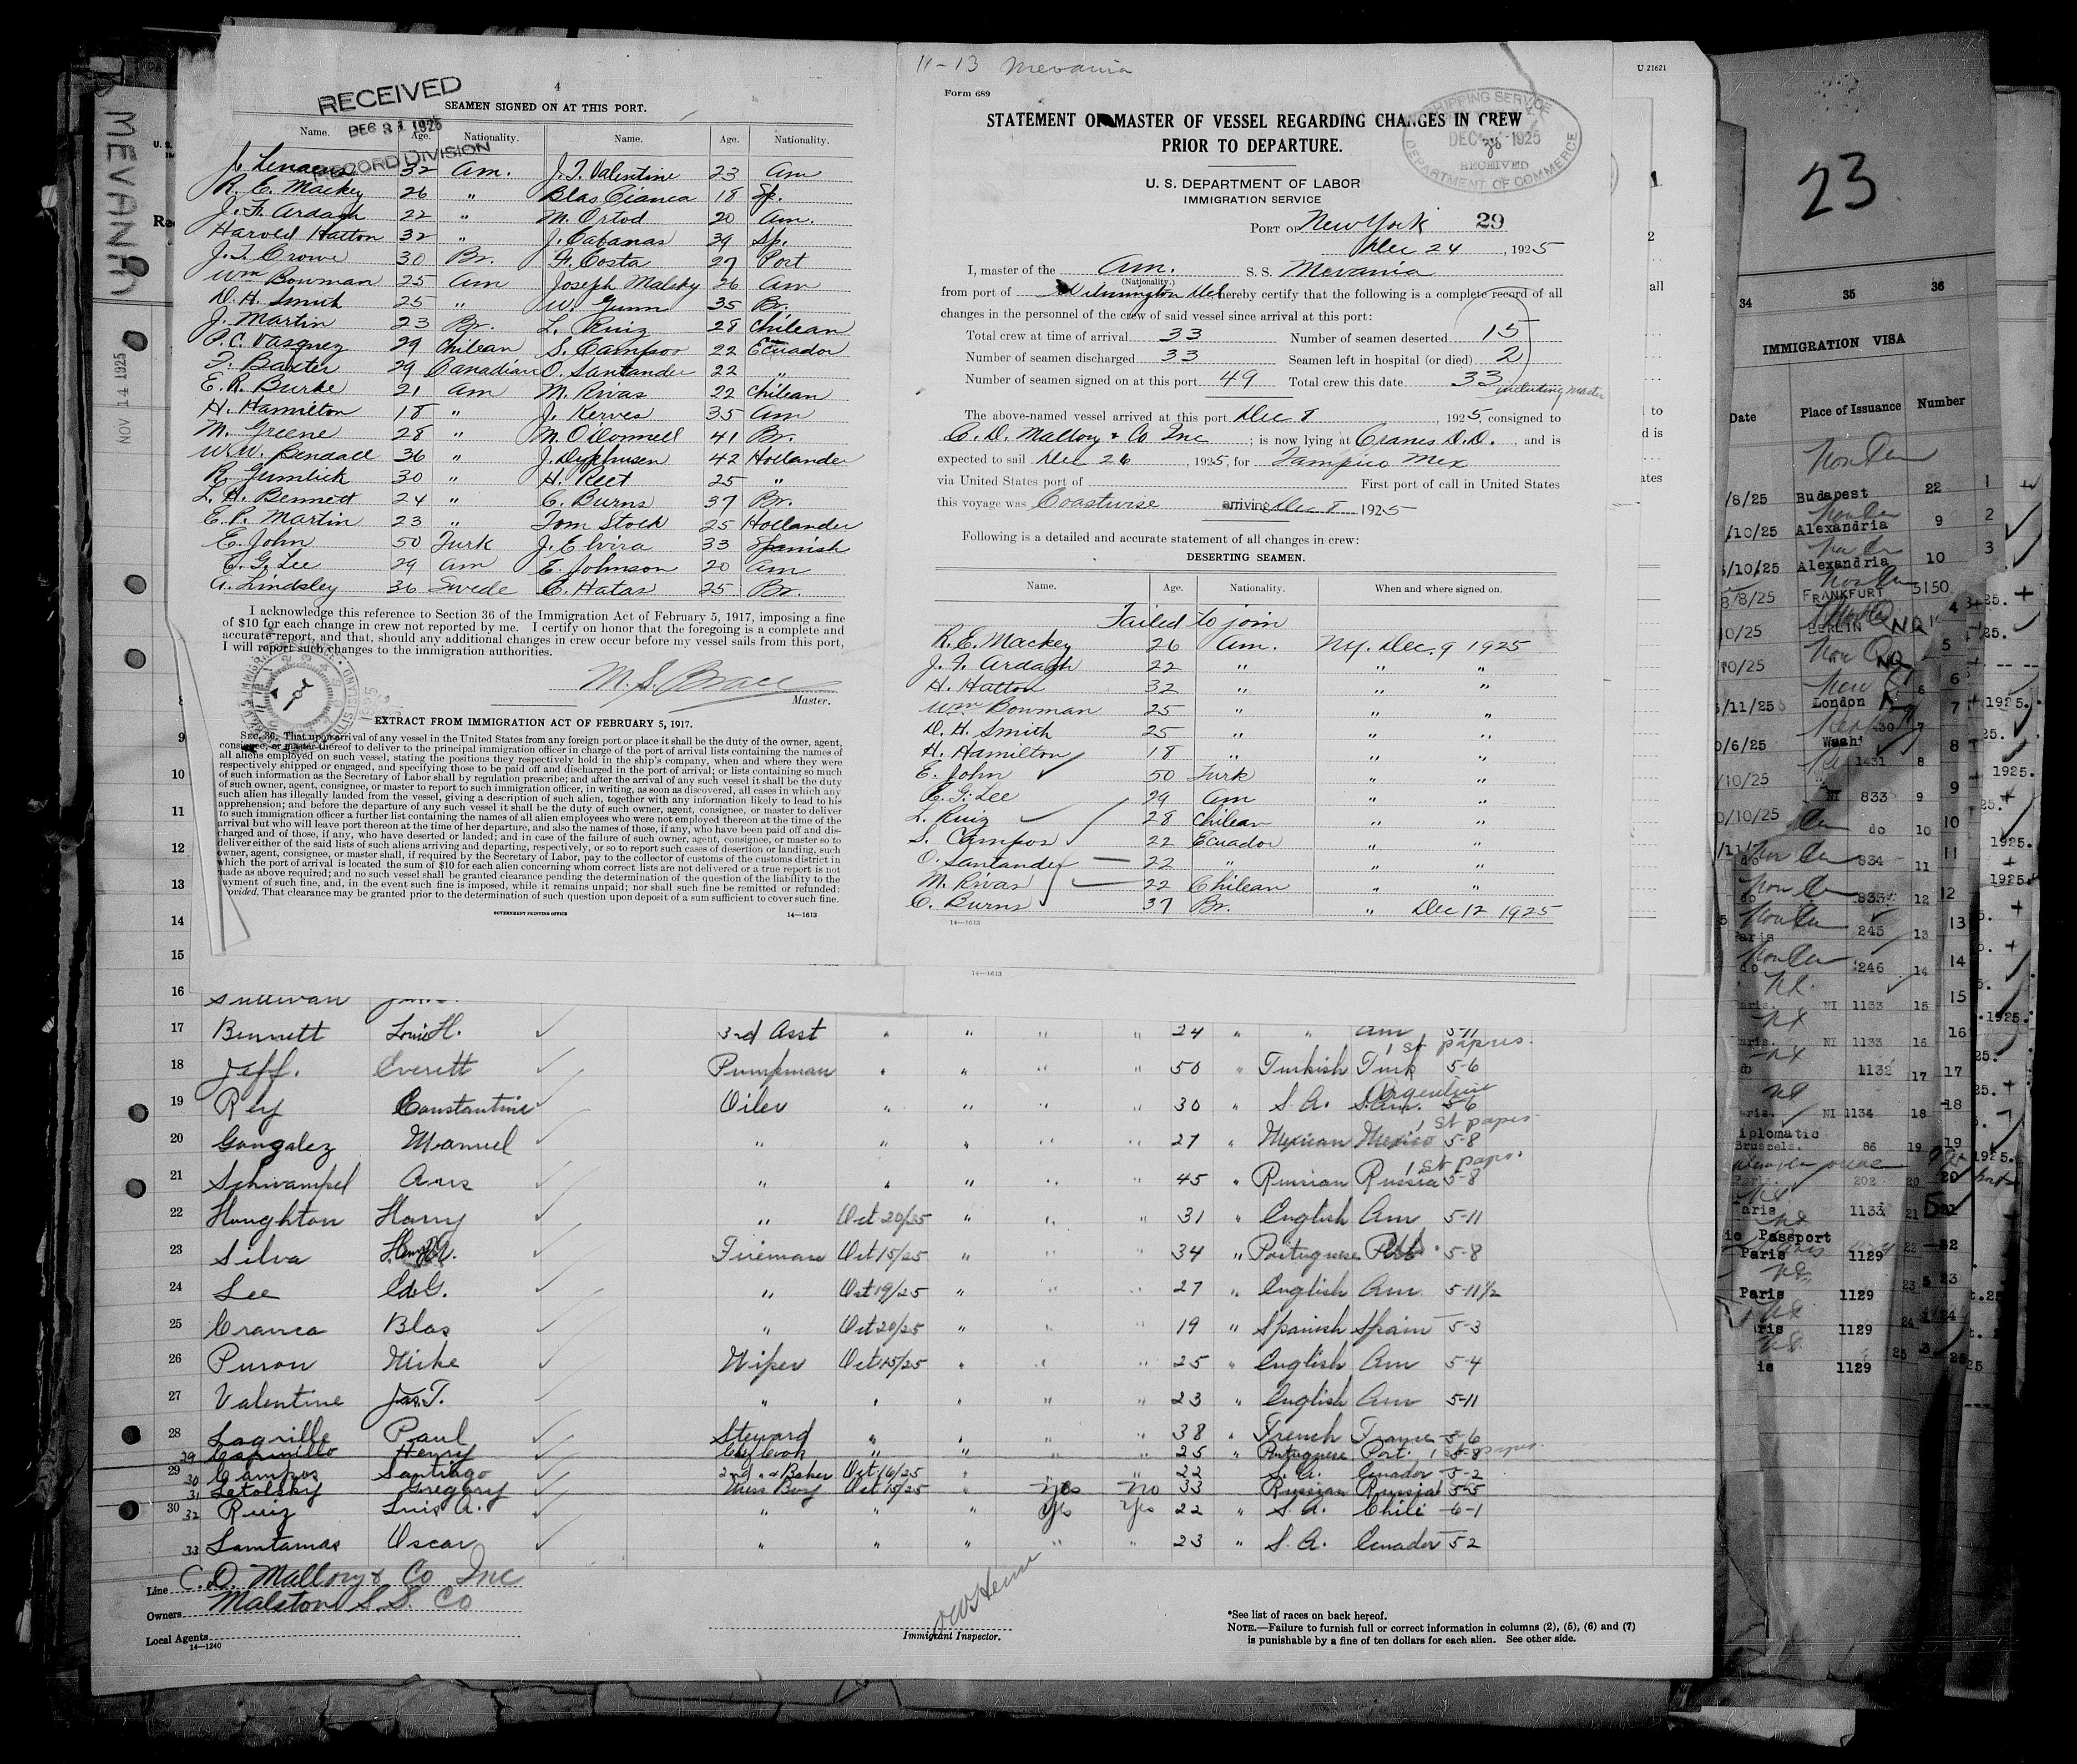 MEVANIA
NOV 14 1925
4
RECEIVED
DEC 31 1925
RECORD DIVISION
SEAMEN SIGNED ON AT THIS PORT.
Name. Age. Nationality. Name. Age. Nationality.
32 Am. J. T. Valentine 23 Am
R. E. Mackey 26 " Blas Cianca 18 Sp.
J. F. Ardagh 22 " M. Ortod 20 Am.
Harold Hatton 32 " J. Cabanas 39 Sp.
J. T. Crowe 30 Br. F. Costa 27 Port
Wm Bowman 25 Am Joseph Malsky 26 Am
D. H. Smith 25 " W. Gunn 35 Br.
J. Martin 23 Br. L. Ruiz 28 Chilean
P. C. Vasquez 29 Chilean S. Campos 22 Ecuador
F. Baxter 29 Canadian O. Santander 22 "
E. R. Burke 21 Am M. Rivas 22 Chilean
H. Hamilton 18 " J. Kerves 35 Am
M. Greene 28 " M. O'Donnell 41 Br.
W. W. Bendall 36 " J. 42 Hollander
R. Gumlick 30 " H. Reet 25 "
L. H. Bennett 24 " C. Burns 37 Br.
E. P. Martin 23 " Tom Stock 25 Hollander
E. John 50 Turk J. Elvira 33 Spanish
E. G. Lee 29 Am E. Johnson 20 Am
A. Lindsley 36 Swede C. Hatas 25 Br.
I acknowledge this reference to Section 36 of the Immigration Act of February 5, 1917, imposing a fine
of $10 for each change in crew not reported by me. I certify on honor that the foregoing is a complete and
accurate report, and that, should any additional changes in crew occur before my vessel sails from this port,
I will report such changes to the immigration authorities.
Master.
EXTRACT FROM IMMIGRATION ACT OF FEBRUARY 5, 1917.
SEC. 36. That upon arrival of any vessel in the United States from any foreign port or place it shall be the duty of the owner, agent,
consignee, or master thereof to deliver to the principal immigration officer in charge of the port of arrival lists containing the names of
all aliens employed on such vessel, stating the positions they respectively hold in the ship's company, when and where they were
respectively shipped or engaged, and specifying those to be paid off and discharged in the port of arrival; or lists containing so much
of such information as the Secretary of Labor shall by regulation prescribe; and after the arrival of any such vessel it shall be the duty
of such owner, agent, consignee, or master to report to such immigration officer, in writing, as soon as discovered, all cases in which any
such alien has illegally landed from the vessel, giving a description of such alien, together with any information likely to lead to his
apprehension; and before the departure of any such vessel it shall be the duty of such owner, agent, consignee, or master to deliver
to such immigration officer a further list containing the names of all alien employees who were not employed thereon at the time of the
arrival but who will leave port thereon at the time of her departure, and also the names of those, if any, who have been paid off and dis-
charged and of those, if any, who have deserted or landed; and in case of the failure of such owner, agent, consignee, or master so to
deliver either of the said lists of such aliens arriving and departing, respectively, or so to report such cases of desertion or landing, such
owner, agent, consignee, or master shall, if required by the Secretary of Labor, pay to the collector of customs of the customs district in
which the port of arrival is located the sum of $10 for each alien concerning whom correct lists are not delivered or a true report is not
made as above required; and no such vessel shall be granted clearance pending the determination of the question of the liability to the
payment of such fine, and, in the event such fine is imposed, while it remains unpaid; nor shall such fine be remitted or refunded:
Provided, That clearance may be granted prior to the determination of such question upon deposit of a sum sufficient to cover such fine.
GOVERNMENT PRINTING OFFICE 14—1613
11-13 Mevania
Form 689
STATEMENT OF MASTER OF VESSEL REGARDING CHANGES IN CREW
PRIOR TO DEPARTURE.
SHIPPING SERVICE
DEC 1925
RECEIVED
DEPARTMENT OF COMMERCE
U. S. DEPARTMENT OF LABOR
IMMIGRATION SERVICE
PORT OF New York 29
Dec 24, 1925
I, master of the Am. S. S. Mevania
(Nationality.)
from port of Wilmington Del hereby certify that the following is a complete record of all
changes in the personnel of the crew of said vessel since arrival at this port:
Total crew at time of arrival 33 Number of seamen deserted 15
Number of seamen discharged 33 Seamen left in hospital (or died) 2
Number of seamen signed on at this port 49 Total crew this date 33 including Master
The above-named vessel arrived at this port Dec 8, 1925, consigned to
C. D. Mallory & Co Inc; is now lying at Cranes D.D., and is
expected to sail Dec 26, 1925, for Tampico Mex
via United States port of First port of call in United States
this voyage was Coastwise arriving Dec 8 1925
Following is a detailed and accurate statement of all changes in crew:
DESERTING SEAMEN.
Name. Age. Nationality. When and where signed on.
Failed to join
R. E. Mackey 26 Am. N.Y. Dec. 9 1925
J. F. Ardagh 22 " " "
H. Hatton 32 " " "
Wm Bowman 25 " " "
D. H. Smith 25 " " "
H. Hamilton 18 " " "
E. John 50 Turk " "
E. G. Lee 29 Am " "
L. Ruiz 28 Chilean " "
S. Campos 22 Ecuador " "
O. Santander 22 " " "
M. Rivas 22 Chilean " "
C. Burns 37 Br. " Dec 12 1925
14—1613
14—1613
U 21621
1
2
all
to
d is
ates
8
9
10
11
12
13
14
15
16 Sullivan
17 Bennett Louis H. 3rd Asst " " " " 24 " " Am 5-11
1st papers.
18 Jeff. Everett Pumpman " " " " 50 " Turkish Turk 5-6
Argentine
19 Rey Constantine Oiler " " " " 30 " S. A. S. Am. 5-6
1st papers
20 Gonzalez Manuel " " " " " 27 " Mexican Mexico 5-8
1st papers
21 Schwampel Ans " " " " " 45 " Russian Russia 5-8
22 Houghton Harry " Oct 20/25 " " " 31 " English Am 5-11
23 Silva Fireman Oct 15/25 " " " 34 " Portuguese Port. 5-8
24 Lee Ed. G. " Oct 19/25 " " " 27 " English Am. 5-11½
25 Cranca Blas " Oct 20/25 " " " 19 " Spanish Spain 5-3
26 Puron Mike Wiper Oct 15/25 " " " 25 " English Am 5-4
27 Valentine Jas. T. " " " " " 23 " English Am 5-11
28 Lagrille Paul Steward " " " " 38 " French France 5-6
29 Espinillo Henry Chf Cook " " " " 25 " Portuguese Port. 5-8 1st papers
29 30 Campos Santiago 2nd " & Baker Oct 16/25 " " " 22 S. A. Ecuador 5-2
31 Letolsky Gregory Mess Boy Oct 15/25 " Yes No 33 Russian Russia 5-5
30 32 Ruiz Luis A. " " " Yes Yes 22 " S. A. Chili 6-1
33 Santamas Oscar " " " " " 23 " S. A. Ecuador 5 2
Line C. D. Mallory & Co Inc
Owners Malston S.S. Co
Local Agents
14—1240
Immigrant Inspector.
*See list of races on back hereof.
NOTE.—Failure to furnish full or correct information in columns (2), (5), (6) and (7)
is punishable by a fine of ten dollars for each alien. See other side.
23
34 35 36
IMMIGRATION VISA
Date Place of Issuance Number
/8/25 Budapest 22 1
/10/25 Alexandria 9 2
/10/25 Alexandria 10 3
8/8/25 FRANKFURT 5150 4
0/25 BERLIN NQ
/10/25 NQ 5
/11/25 London 6
0/6/25 Wash 430 7
/10/25 1431 8
NI 833 9
0/10/25 do 10
do 834 11
do 835 12
Paris 245 13
do 246 14
Paris. NI 1133 15
Paris. NI 1133 16
do 1132 17
Paris. NI 1134 18
Diplomatic
Brussels. 86 19
Paris. 202 20
Paris 1133 21
Passport
Paris 1129 22
Paris 1129 23
Paris 1129 24
1129 25